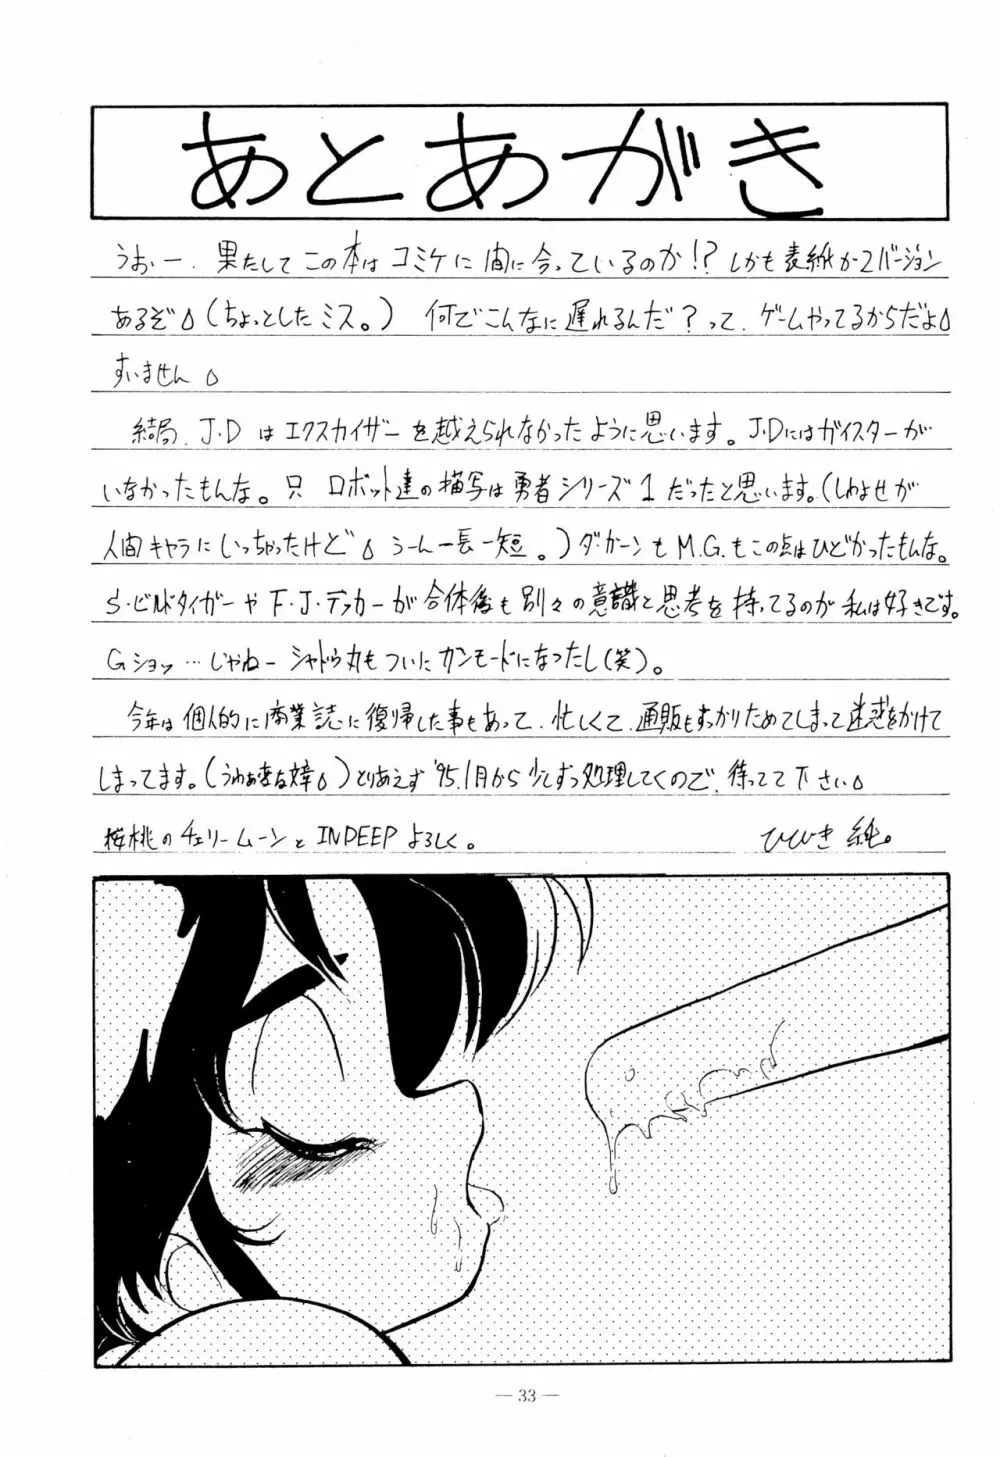 あとあがき
うおー、果たしてこの本はコミケに間に合っているのか!?しかも表紙が2バージョン
あるぞ(ちょっとしたミス。) 何でこんなに遅れるんだ?って、ゲームやってるからだよ
すいません
結局、J・Dはエクスカイザーを越えられなかったように思います。J・Dにはガイスターが
いなかったもんな。只 ロボット達の描写は勇者シリーズ1だったと思います。(しわよせが
人間キャラにいっちゃったけど うーん一長一短。)ダ・ガーンもM.G.もこの点はひどかったもんな。
S・ビルドタイガーやF・J・デッカーが合体後も別々の意識と思考を持ってるのが私は好きです。
Gショッ…じゃねーシャドウ丸もついにガンモードになったし(笑)。
今年は個人的に商業誌に復帰した事もあって、忙しくて、通販もすっかりためてしまって迷惑をかけて
しまってます。(うわぁ)とりあえず'95.1月から少しずつ処理してくので、待ってて下さい
桜桃のチェリームーンとINDEEPよろしく。 ひびき純。
— 33 —